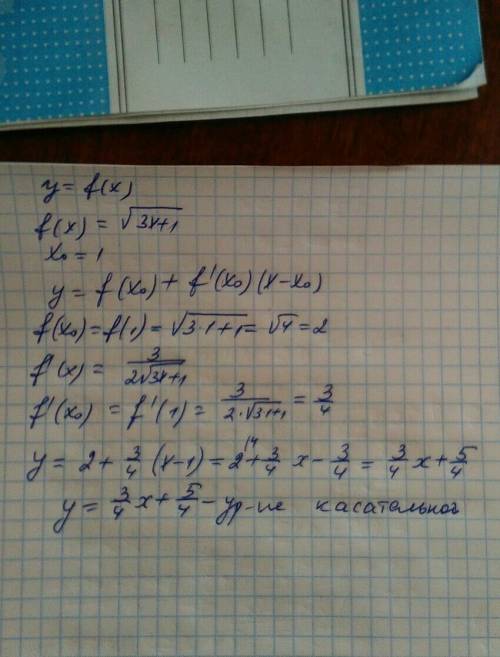 y = f(x)
f(x) = √(3x+1)
x₀ = 1
y = f(x₀) + f'(x₀)(x-x₀)
f(x₀) = f(1) = √(3·1+1) = √4 = 2
f'(x) = 3/(2√(3x+1))
f'(x₀) = f'(1) = 3/(2·√(3·1+1)) = 3/4
y = 2 + 3/4 (x-1) = 2^{(4} + 3/4 x - 3/4 = 3/4 x + 5/4
y = 3/4 x + 5/4 - ур-ие касательной